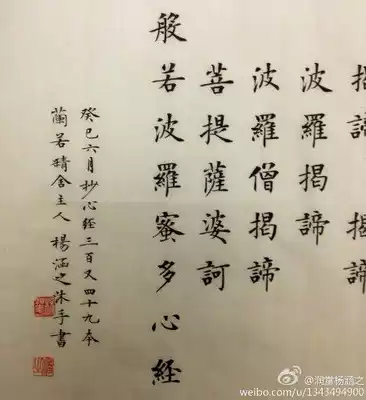 揭諦 揭諦
波羅揭諦
波羅僧揭諦
菩提薩婆訶
般若波羅蜜多心経
癸巳六月抄心經三百又四十九本
蘭若精舍主人楊涵之沐手書
@润堂杨涵之
weibo.com/u/1343494900